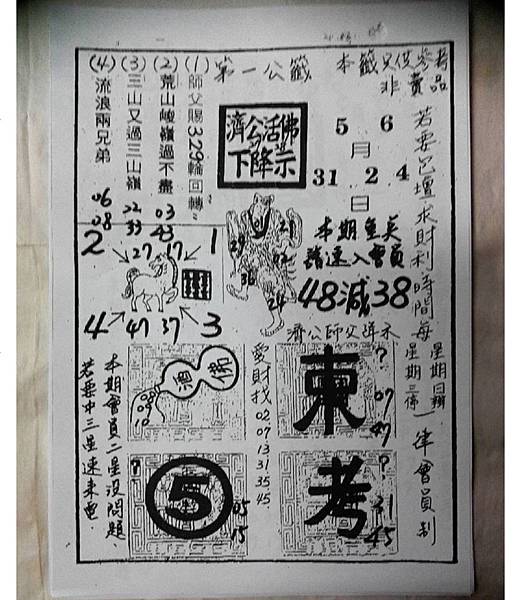 本籤只供參考
非賣品
第一公籤
(1)師父賜329輪回轉"
(2)荒山峻嶺過不盡 03 43
(3)三山又過三山嶺 22 33
(4)流浪兩兄弟 06 08
濟公活佛
下降示
5 6
月
31 2 4
日
若要包壇求財利時間每
星期日辦
星期三停
一律會員制
本期兔英
請速入會員
48減38
濟公師父降示
2 27 17 1
4 47 37 3
29 21
36 24
酒 佛
08
09
10
愛財找 02 07 13 31 35 45
東 ? 07 47
5 ? 05 15
考 ? 31 45
本期會員二星沒問題、
若要中三星速來電.